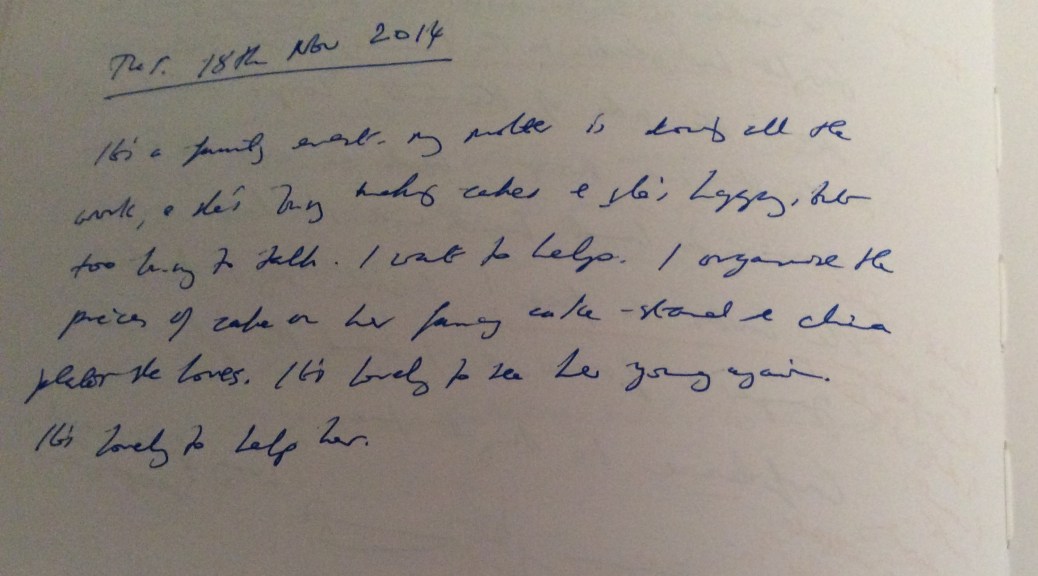 Tues. 18th Nov 2014
It's a family event. My mother is doing all the
work, & she's busy making cakes & she's happy, but
too busy to talk. I want to help. I organise the
pieces of cake on her fancy cake-stand & china
plates she loves. It's lovely to see her young again.
It's lovely to help her.